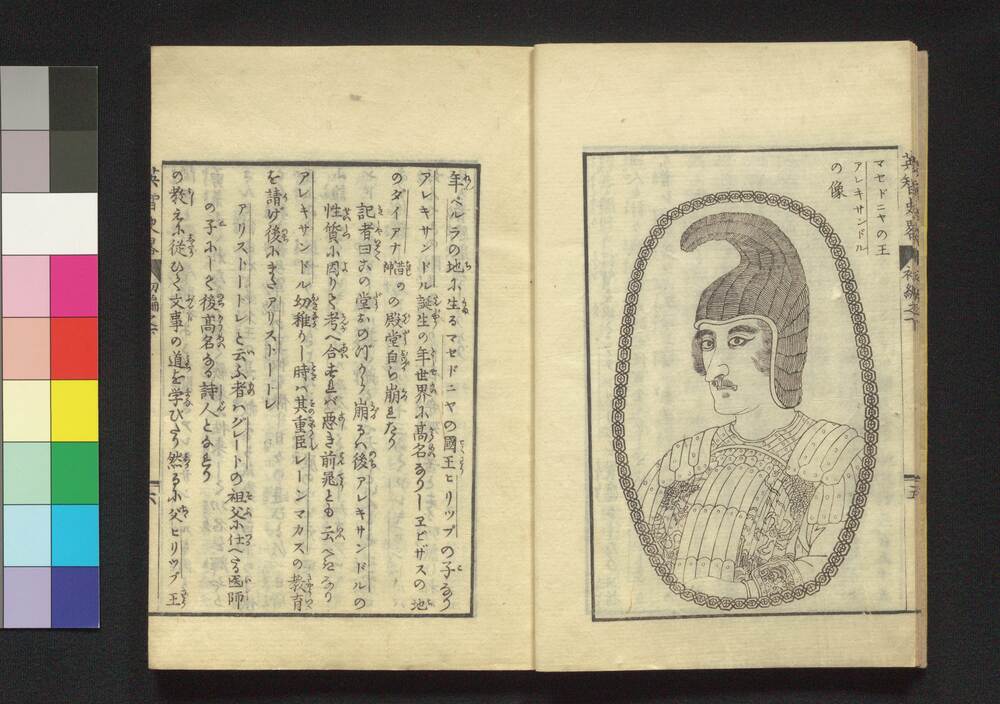 マセドニヤの王
アレキサンドル
の像
年ペルラの地に生るマセドニヤの國王ヒリップの子なり
アレキサンドル誕生の年世界に高名なりしエピザスの地
のダイアナ 昔の神 の殿堂自ら崩れたり
記者曰この堂おのづから崩るハ後アレキサンドルの
性質に因りて考へ合すれバ悪き前兆とも云べきなり
アレキサンドル幼稚りし時ハ其重臣レーンマカスの教育
を請け後にまたアリストートレ
アリストートレと云ふ者ハグレートの祖父に仕へる国師
の子にして後高名なる詩人となれり
の教えに従ひて文事の道を学びたり然るに父ヒリップ王